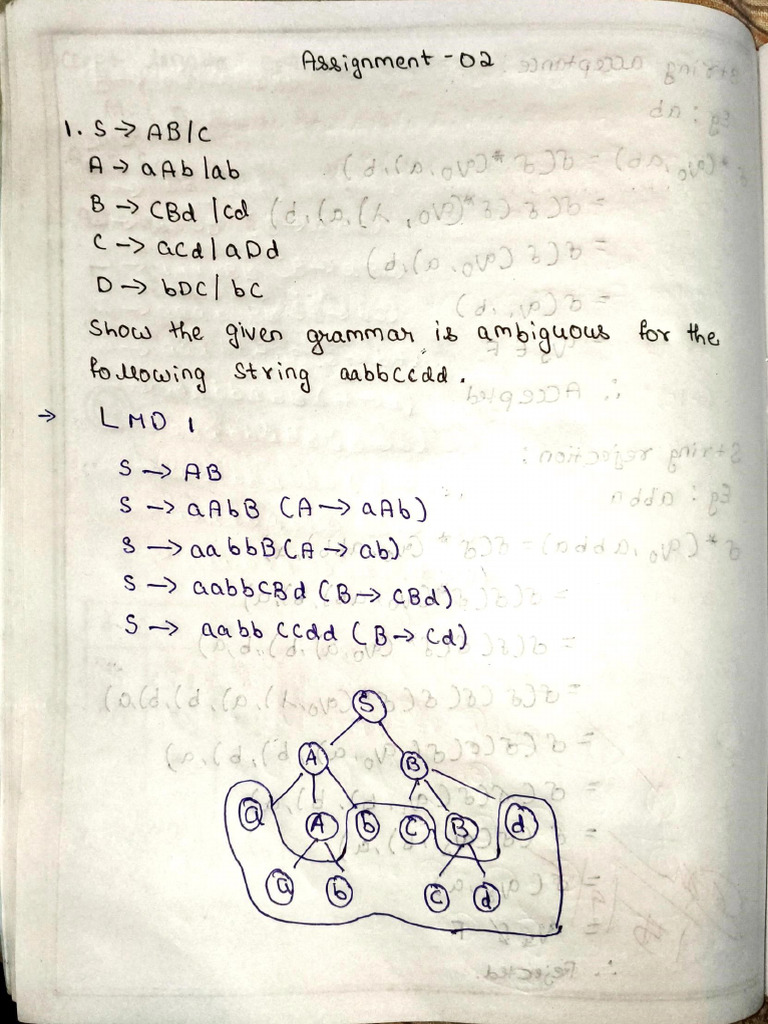 Assignment - 02
1. S → AB/C
A → aAb/ab
B → CBd/Cd
C → aCd/aDd
D → bDC/bC
Show the given grammar is ambiguous for the
following String aabbccdd.
→ LMD 1
S → AB
S → aAbB (A → aAb)
S → aabbB (A → ab)
S → aabbCBd (B → CBd)
S → aabb CCdd (B → Cd)
S
A B
a A b C B d
a b C d